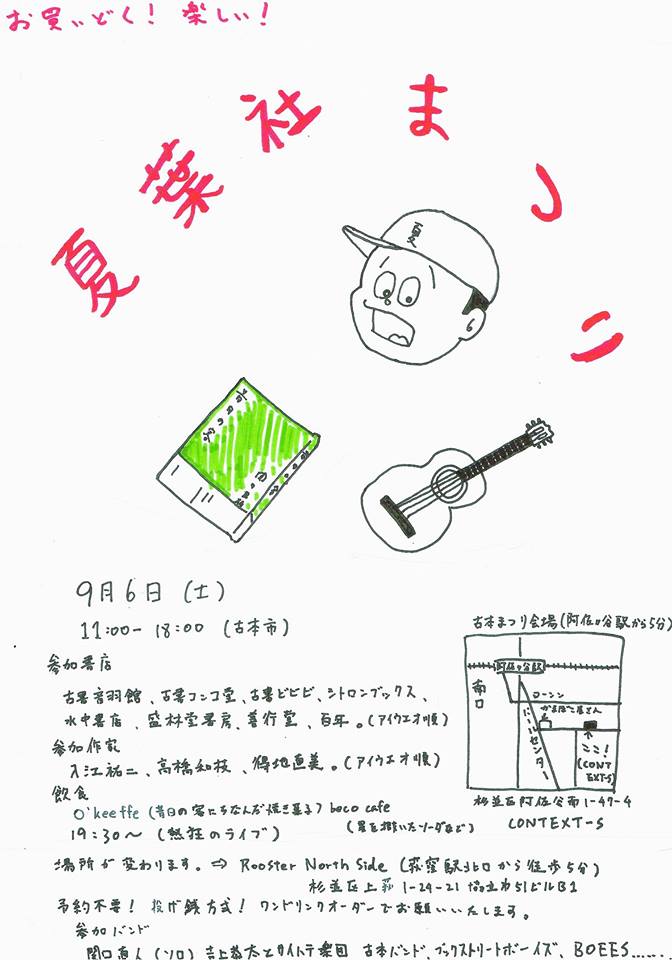 お買いどく！ 楽しい！
夏葉社まつり
夏
昔日の客
9月6日（土）
11:00-18:00（古本市）
参加書店
古書音羽館、古書コンコ堂、古書ビビビ、シトロンブックス、
水中書店、盛林堂書房、善行堂、百年。（アイウエオ順）
参加作家
入江祐二、高橋和枝、得地直美。（アイウエオ順）
飲食
O'keeffe（昔日の客にちなんだ焼き菓子）boco cafe
（星を撒いたソーダなど）
19:30～（熱狂のライブ）
場所が変わります。⇒ Rooster North Side（荻窪駅北口から徒歩5分）
杉並区上荻1-24-21 協立第51ビルB1
予約不要！投げ銭方式！ワンドリンクオーダーでお願いいたします。
参加バンド
関口直人（ソロ）吉上恭太とサイトテ楽団 古本バンド、ブックストリートボーイズ、BOEES......
古本まつり会場（阿佐ヶ谷駅から5分）
阿佐ヶ谷駅
南口
ローソン
かまぼこ屋さん
パールセンター
ここ！
（CONT
EXT-S）
杉並区阿佐谷南1-47-4
CONTEXT-S